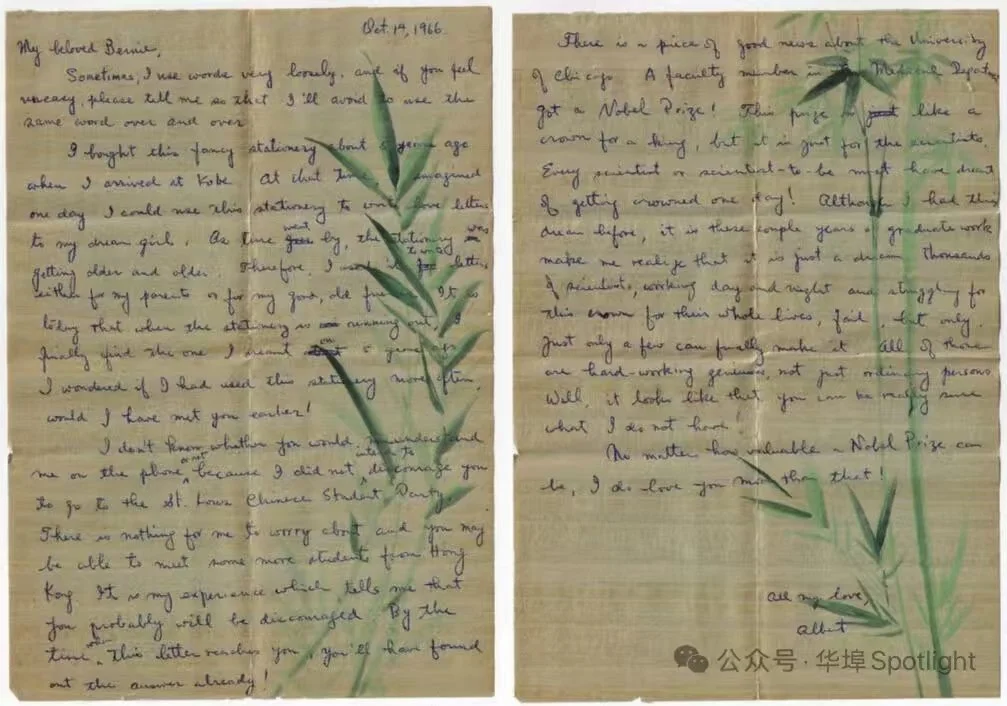 Oct. 14, 1966
My beloved Bernie,
Sometimes, I use words very loosely, and if you feel
uneasy, please tell me so that I'll avoid to use the
same word over and over
I bought this fancy stationery about 5 years ago
when I arrived at Kobe. At that time, I imagined
one day I could use this stationery to write love letters
to my dream girl. As time went by, the stationery was
getting older and older. Therefore, I used it to write letters
either for my parents or for my good, old friends. It is
today that when the stationery is running out, I
finally find the one I dreamt on 5 years ago
I wondered if I had used this stationery more often,
would I have met you earlier!
I don't know whether you would misunderstand
me on the phone or not because I did not intend to discourage you
to go to the St. Louis Chinese Student Party.
There is nothing for me to worry about and you may
be able to meet some more students from Hong
Kong. It is my experience which tells me that
you probably will be discouraged. By the
time when this letter reaches you, you'll have found
out the answer already!
There is a piece of good news about the University
of Chicago. A faculty member in the Medical
got a Nobel Prize! This prize is like a
crown for a king, but it is just for the scientists.
Every scientist or scientist-to-be must have dreamt
of getting crowned one day! Although I had this
dream before, it is these couple years of graduate work
make me realize that it is just a dream. Thousands
of scientists, working day and night and struggling for
this crown for their whole lives, fail, but only,
just only a few can finally make it. All of those
are hard-working geniuses, not just ordinary persons
Well, it looks like that you can be really sure
what I do not have!
No matter how valuable a Nobel Prize can
be, I do love you more than that!
All my love,
Albert
公众号·华埠Spotlight